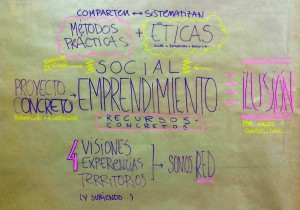 COMPARTEN ↔ SISTEMATIZAN
MÉTODOS
PRÁCTICAS + ÉTICAS
SOCIAL
PROYECTO
CONCRETO
EMPRENDIMIENTO
ILUSIÓN
RECURSOS
CONCRETOS
POR HACER Y
4 VISIONES
EXPERIENCIAS
TERRITORIOS
SOMOS RED
(Y SUMANDO...)